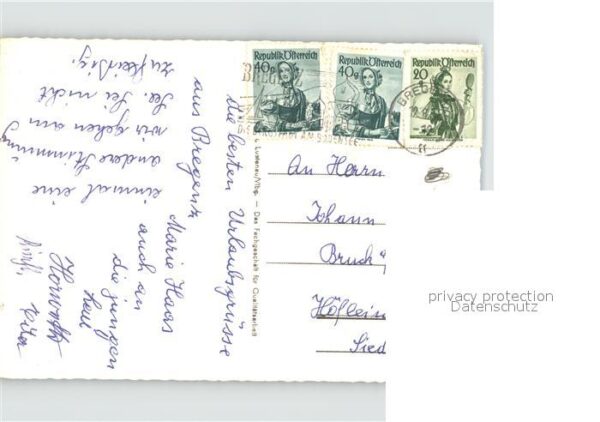 Republik Österreich
40g
Republik Österreich
40g
Republik Österreich
20
BREGENZ
An Herrn
Johann
Bruch
Höflein
Sied
privacy protection
Datenschutz
Lustenau/Vlbg. — Das Fachgeschäft für Qualitätsarbeit
die besten Urlaubsgrüsse
aus Bregenz
Marie Haas
auch an
die jungen
Leut
Horvath
einmal eine
andere Stimmung
wir gehen am
See. Sei nicht
zu fleißig.